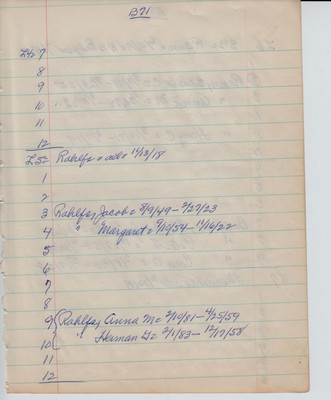 B71
L42 7
8
9
10
11
12
L52 Rohlfs = all = 11/13/18
1
2
3 Rohlfs, Jacob = 8/9/49 - 2/27/23
4 " Margaret = 9/19/54 - 11/16/22
5
6
7
8
9 Rohlfs, Anna M = 2/19/81 - 4/25/59
10 " Herman G = 2/1/83 - 12/17/58
11
12